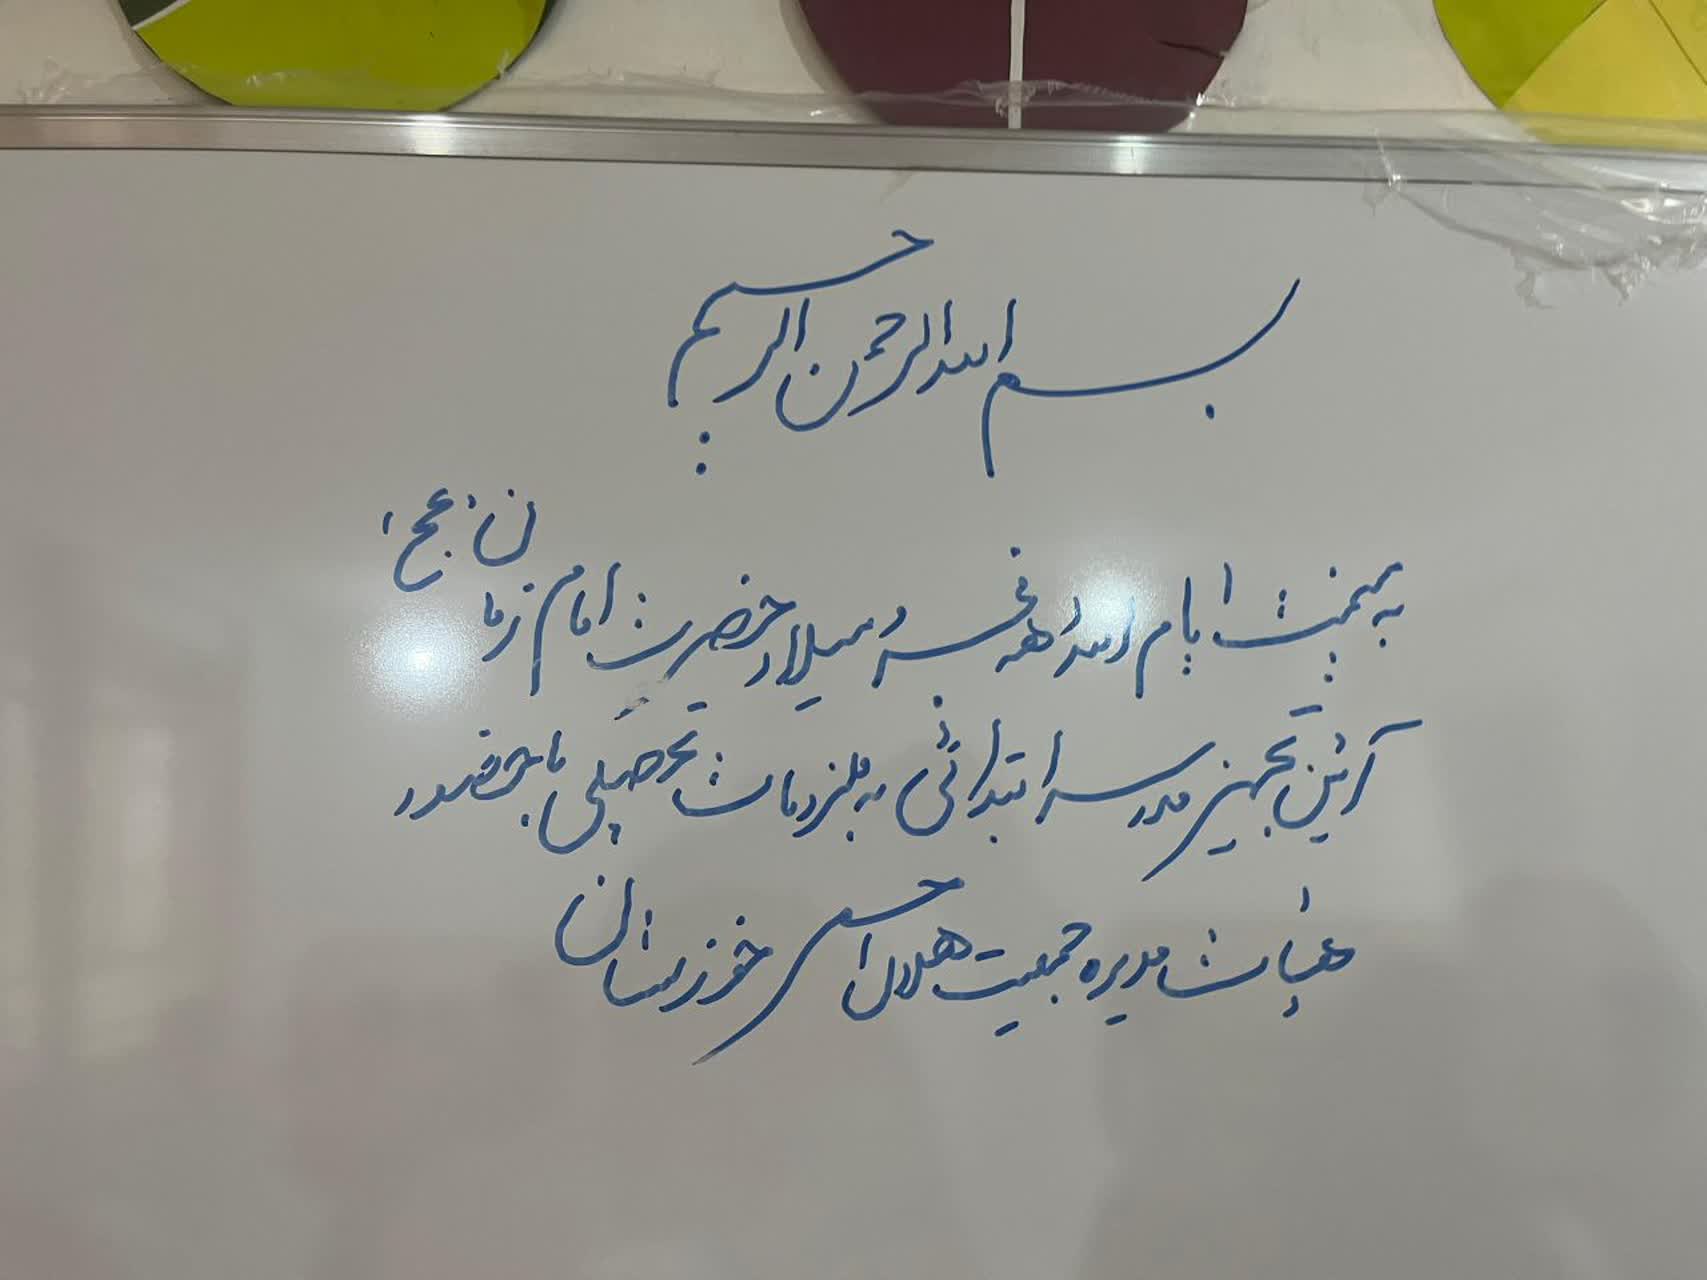 بسم الله الرحمن الرحیم
به میمنت ایام الله دهه فجر و میلاد حضرت امام زمان (عج)
آئین تجهیز مدرسه ابتدائی به ملزومات تحصیلی با حضور
هیات مدیره جمعیت هلال احمر خوزستان